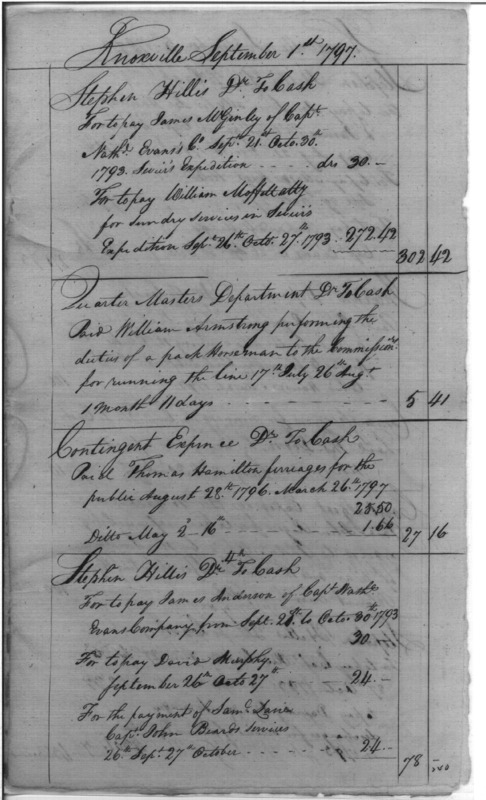 Knoxville September 1.st 1797.
Stephen Hillis Dr. To Cash
For to pay James McGinley of Capt.
Nath.l Evans's Co. Sept. 21st Octo. 30th
1793 Sevier's Expedition . . . . drs 30.-
For to pay William Moffett atty
for sundry services in Sevier's
Expedition Sept. 26th Octo. 27th 1793 .. 272.42
302 42
Quarter Masters Department Dr. To Cash
Paid William Armstrong performing the
duties of a pack Horseman to the Commissinrs
for running the line 17th July 26th Augt
1 Month 11 days - - - - - - - - 5 41
Contingent Expence Dr. To Cash
Paid Thomas Hamilton ferriages for the
public August 28th 1796. March 26th 1797
25.50
Ditto May 2d 16th 1.66
27 16
4th
Stephen Hillis Dr. To Cash
For to pay James Anderson of Capt. Nathl
Evans Company from Sept. 21st to Octo. 30th 1793
30 -
For to pay David Murphy.
September 26th Octo 27th 24.-
For the payment of Saml. Lane
Capt. John Beards services
26th Sept. 27th October - - - - - 24-
78